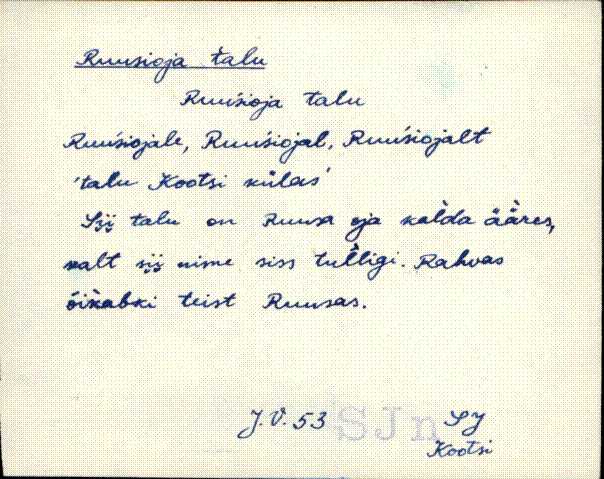 Ruusioja talu
Ruuśioja talu
Ruuśiojale, Ruuśiojal, Ruuśiojalt
'talu Kootsi külas'
Sii̮ talu on Ruusa oja kalda ääres,
kalt sii̮ nime siss tulligi. Rahvas
õikabki teist Ruusas.
J.V. 53 SJn SJ
Kootsi